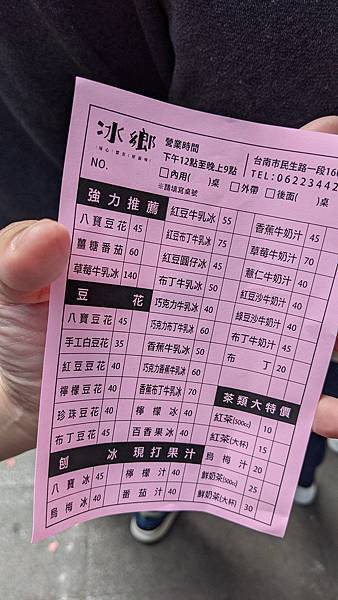 冰鄉
營業時間
下午12點至晚上9點
台南市民生路一段160
TEL:06223442
NO.
□內用( )桌 □外帶 □後面( )桌
※請填寫桌號
強力推薦
八寶豆花 45
薑糖番茄 60
草莓牛乳冰 140
豆花
八寶豆花 45
手工白豆花 35
紅豆豆花 40
檸檬豆花 40
珍珠豆花 40
布丁豆花 45
刨冰
八寶冰 45
烏梅冰 40
紅豆牛乳冰 55
紅豆布丁牛乳冰 75
紅豆圓仔冰 45
布丁牛乳冰 50
巧克力牛乳冰 40
巧克力布丁牛乳冰 60
香蕉牛乳冰 50
巧克力香蕉牛乳冰 60
香蕉布丁牛乳冰 70
檸檬冰 40
百香果冰 40
現打果汁
檸檬汁 40
番茄汁 40
香蕉牛奶汁 45
草莓牛奶汁 70
薏仁牛奶汁 40
紅豆沙牛奶汁 40
綠豆沙牛奶汁 40
布丁牛奶汁 45
布丁 20
茶類大特價
紅茶(500cc) 10
紅茶(大杯) 15
烏梅汁 20
鮮奶茶(500cc) 25
鮮奶茶(大杯) 30